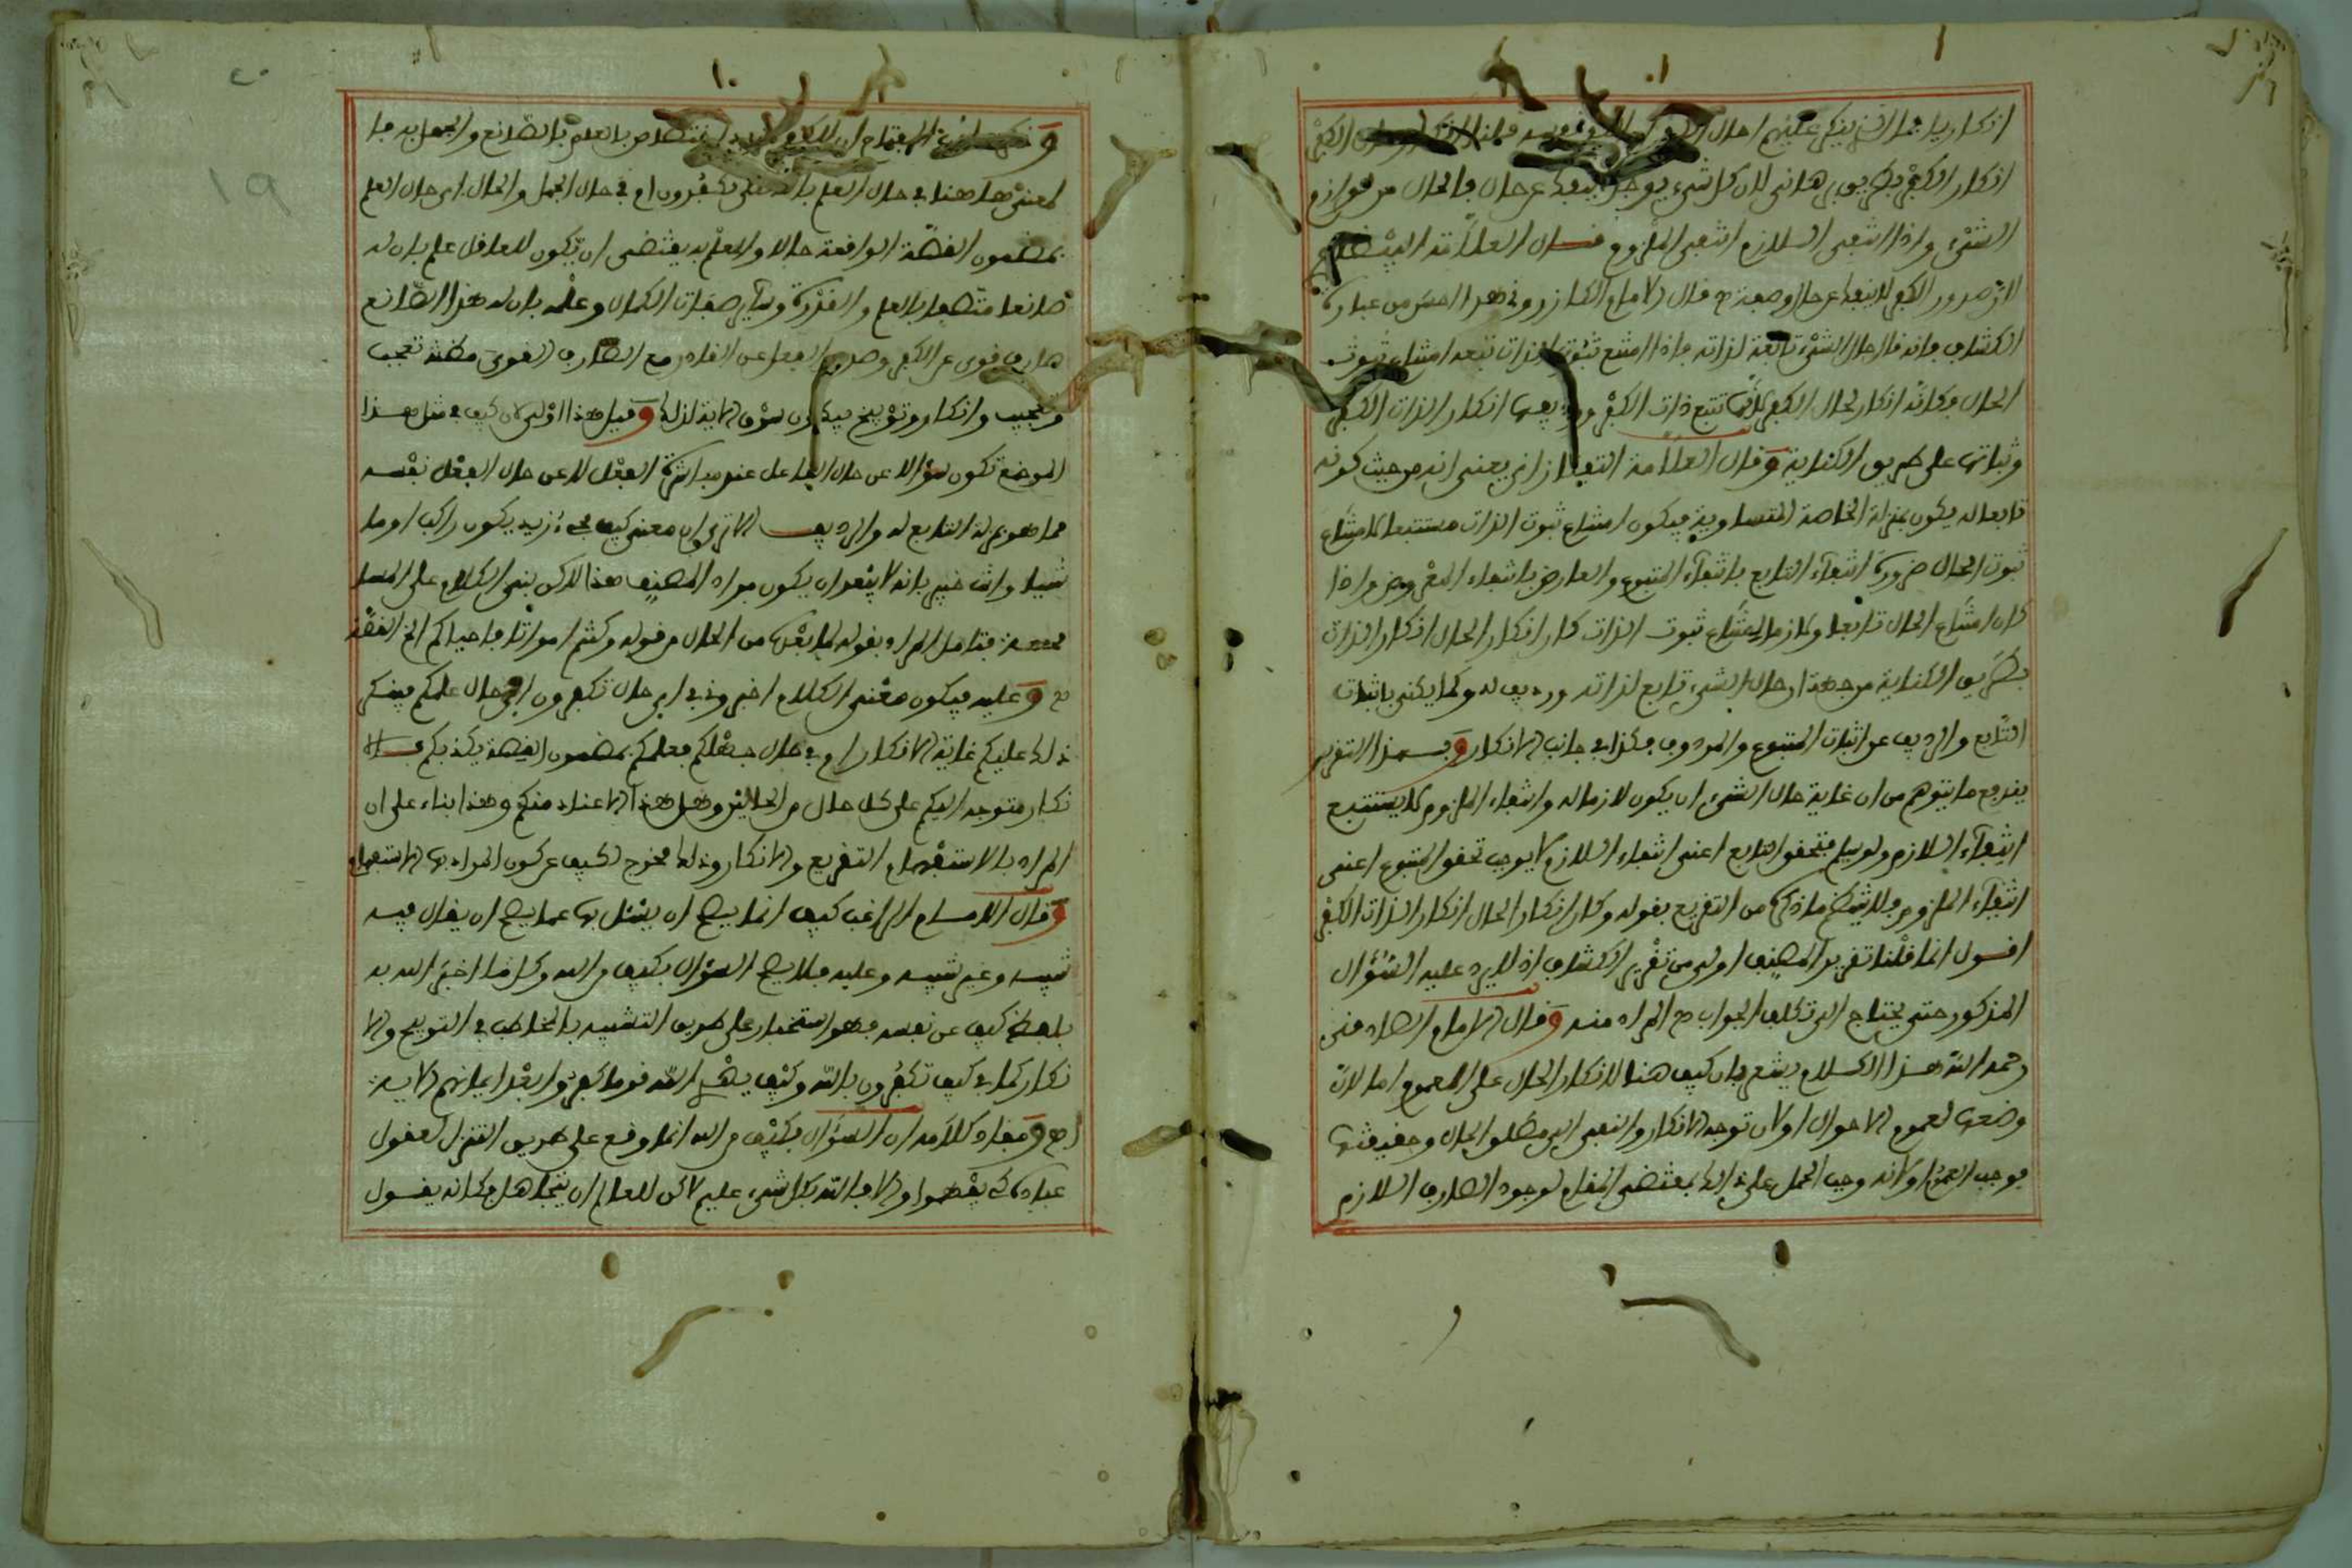 انكار
انكار الكفر بطريق برهاني لان كل شيء يوجد لا ينفك عن حال فالحال من لوازم
الشيء واذا انتفى اللازم انتفى الملزوم قال العلامة البيضاوي
لان صدور الكفر لا ينفك عن حال وصفة ح قال الامام الكازروني هذا احسن من عبارة
الكشاف فانه قال حال الشيء تابعة لذاته فاذا امتنع ثبوت الذات تبعه امتناع ثبوت
الحال فكانه انكار لحال الكفر لانها تتبع ذات الكفر ورديفها انكار لذات الكفر
وثباتها على طريق الكناية وقال العلامة التفتازاني يعني انه من حيث كونه
تابعا له يكون بمنزلة الخاصة المتساوية فيكون امتناع ثبوت الذات مستتبعا لامتناع
ثبوت الحال ضرورة انتفاء التابع بانتفاء المتبوع والعارض بانتفاء المعروض واذا
كان امتناع الحال تابعا ولازما لامتناع ثبوت الذات كان انكار الحال انكار الذات
بطريق الكناية من جهة ان حال الشيء تابع لذاته ورديف له وكما يكنى باثبات
التابع والرديف عن اثبات المتبوع والمردوف فكذا في جانب الانكار وبهذا التقرير
يندفع ما يتوهم من ان غاية حال الشيء ان يكون لازما له وانتفاء الملزوم لا يستتبع
انتفاء اللازم ولو سلم فتحقق التابع اعني انتفاء اللازم لا يوجب تحقق المتبوع اعني
انتفاء الملزوم فلا يتضح ما ذكره من التفريع بقوله وكان انكار الحال انكار الذات الكفر
اقول انما قلنا تقرير المصنف اولى من تقرير الكشاف اذ لا يرد عليه السؤال
المذكور حتى يحتاج الى تكلف الجواب ح المراد منه وقال الامام الصادقي
رحمه الله هذا الكلام يشعر بان كيف هنا لانكار الحال على العموم اما لان
وضعها لعموم الاحوال او لان توجه الانكار والنفي الى مطلق الحال وحقيقتها
يوجب العموم او لانه وجب الحمل على ذلك بمقتضى المقام لوجود الصارف اللازم
بالعلم بالصانع والجهل به فا
لمعنى هاهنا في حال العلم بالله تكفرون ام في حال الجهل والحال اي حال العلم
بمضمون القصة الواقعة حالا والعلم به يقتضي ان يكون للعاقل علم بان له
صانعا متصفا بالعلم والقدرة وسائر صفات الكمال وعلمه بان له هذا الصانع
صارف قوي عن الكفر وصدور الفعل عن القادر مع الصارف القوي مظنة تعجب
وتعجيب وانكار وتوبيخ فيكون سوق الاية لذلك وقيل هذا اولى لان كيف في مثل هذا
الموضع تكون سؤالا عن حال الفاعل عند مباشرة الفعل لا عن حال الفعل نفسه
مما هو بمنزلة التابع له والرديف الا ترى ان معنى كيف جاء زيد يكون راكبا او ما
شيا وانت خبير بانه لا يبعد ان يكون مراد المصنف هذا لاكن بنى الكلام على المسا
محة فتامل المراد بقوله لما بعده من الحال من قوله وكنتم امواتا فاحياكم الخ القصة
ح وعليه فيكون معنى الكلام اخبروني في اي حال تكفرون اي في حال علمكم فينكر
ذلك عليكم غاية الانكار ام في حال جهلكم فعلمكم بمضمون القصة يكذبكم فالا
نكار متوجه اليكم على كل حال من الحالين وهل هذا الا عناد منكم وهذا بناء على ان
المراد بالاستفهام التقريع والانكار وذلك مخرج لكيف عن كون المراد بها الاستفهام
وقال الامام الراغب كيف انما يصح ان يسئل بها عما يصح ان يقال فيه
شبيه وغير شبيه وعليه فلا يصح السؤال بكيف من الله وكل ما اخبر الله به
بلفظ كيف عن نفسه فهو استخبار على طريق التنبيه بالمخاطب في التوبيخ والا
نكار كما في كيف تكفرون بالله وكيف يهدي الله قوما كفروا بعد ايمانهم الاية
اح ومفاد كلامه ان السؤال بكيف من الله انما وقع على طريق التنزل لعقول
عباده كي يفهموا والا فالله بكل شيء عليم لاكن للعالم ان يتجاهل فكانه يقول